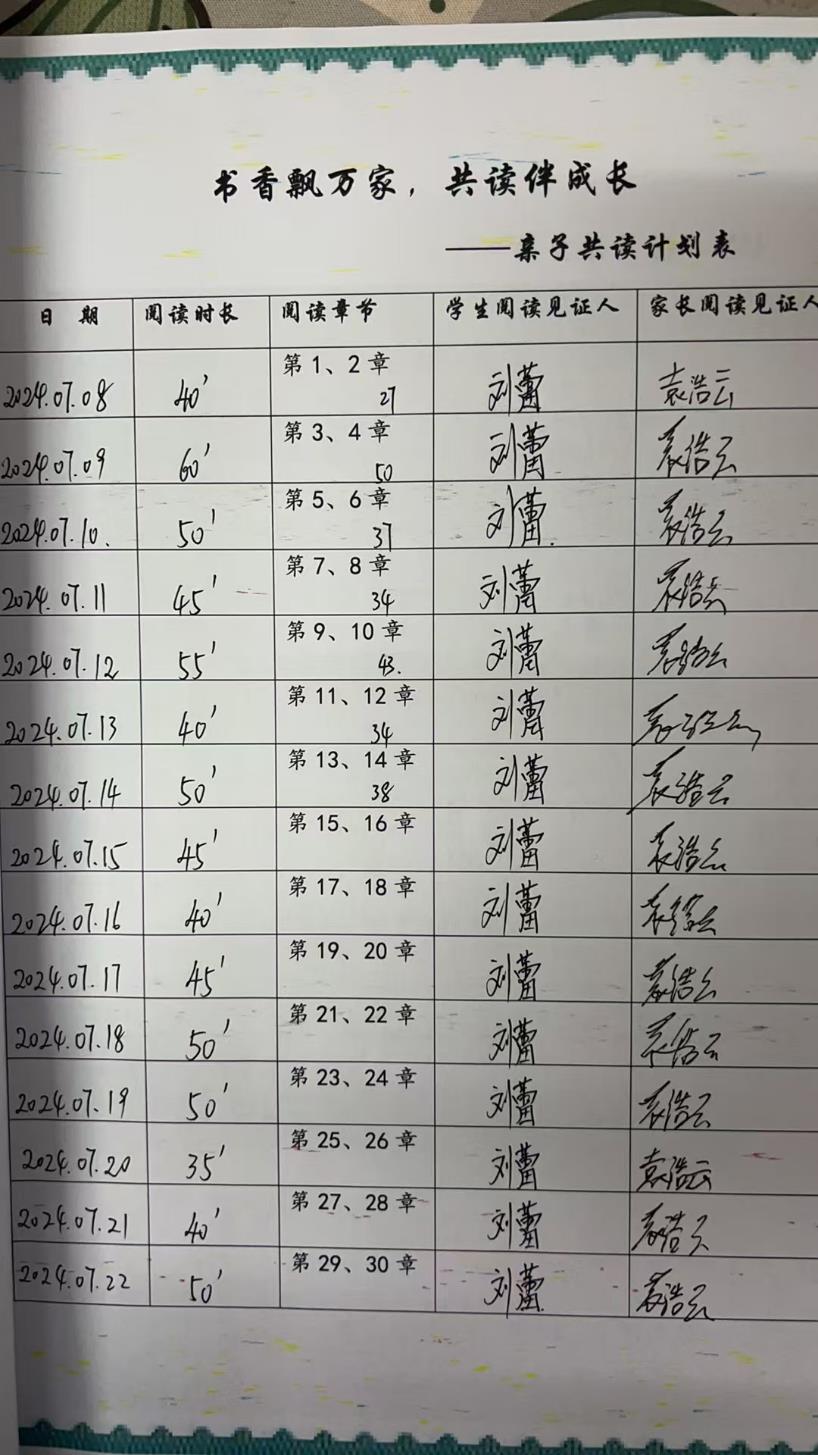 书香飘万家，共读伴成长
——亲子共读计划表
日 期 阅读时长 阅读章节 学生阅读见证人 家长阅读见证人
2024.07.08 40' 第1、2章 27 刘蕾 袁浩云
2024.07.09 60' 第3、4章 50 刘蕾 袁浩云
2024.07.10. 50' 第5、6章 37 刘蕾 袁浩云
2024.07.11 45' 第7、8章 34 刘蕾 袁浩云
2024.07.12 55' 第9、10章 43. 刘蕾 袁浩云
2024.07.13 40' 第11、12章 34 刘蕾 袁浩云
2024.07.14 50' 第13、14章 38 刘蕾 袁浩云
2024.07.15 45' 第15、16章 刘蕾 袁浩云
2024.07.16 40' 第17、18章 刘蕾 袁浩云
2024.07.17 45' 第19、20章 刘蕾 袁浩云
2024.07.18 50' 第21、22章 刘蕾 袁浩云
2024.07.19 50' 第23、24章 刘蕾 袁浩云
2024.07.20 35' 第25、26章 刘蕾 袁浩云
2024.07.21 40' 第27、28章 刘蕾 袁浩云
2024.07.22 50' 第29、30章 刘蕾 袁浩云